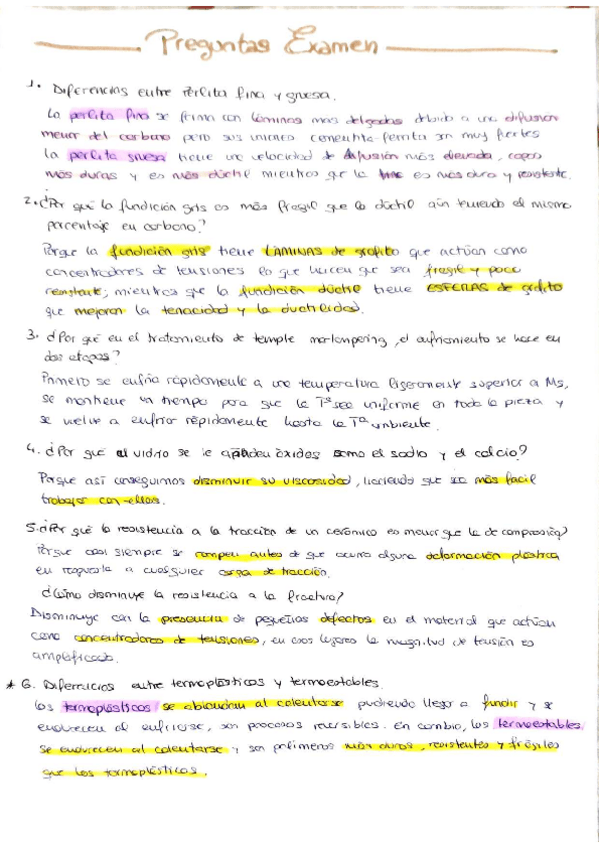 Preguntas Examen
1. Diferencias entre Perlita fina y gruesa.
La perlita fina se forma con láminas más delgadas debido a una difusión
menor del carbono pero sus uniones cementita-ferrita son muy fuertes
la perlita gruesa tiene una velocidad de difusión más elevada, capas
más duras y es más dúctil mientras que la fina es más dura y resistente.
2. ¿Por qué la fundición gris es más fragil que la dúctil aún teniendo el mismo
porcentaje en carbono?
Porque la fundición gris tiene LÁMINAS de grafito que actúan como
concentradores de tensiones lo que hacen que sea fragil y poco
resistente, mientras que la fundición dúctil tiene ESFERAS de grafito
que mejoran la tenacidad y la ductilidad.
3. ¿Por qué en el tratamiento de temple martempering, el enfriamiento se hace en
dos etapas?
Primero se enfría rápidamente a una temperatura ligeramente superior a Ms,
se mantiene un tiempo para que la Tª sea uniforme en toda la pieza y
se vuelve a enfriar rápidamente hasta la Tª ambiente.
4. ¿Por qué al vidrio se le añaden óxidos como el sodio y el calcio?
Porque así conseguimos disminuir su viscosidad, haciendo que sea más facil
trabajar con ellos.
5. ¿Por qué la resistencia a la tracción de un cerámico es menor que la de compresión?
Porque casi siempre se rompen antes de que ocurra alguna deformación plástica
en respuesta a cualquier carga de tracción.
¿Cómo disminuye la resistencia a la fractura?
Disminuye con la presencia de pequeños defectos en el material que actúan
como concentradores de tensiones, en esos lugares la magnitud de tensión es
amplificada.
* 6. Diferencias entre termoplásticos y termoestables.
Los termoplásticos se ablandan al calentarse pudiendo llegar a fundir y se
endurecen al enfriarse, son procesos reversibles. En cambio, los termoestables
se endurecen al calentarse y son polímeros más duros, resistentes y frágiles
que los termoplásticos.